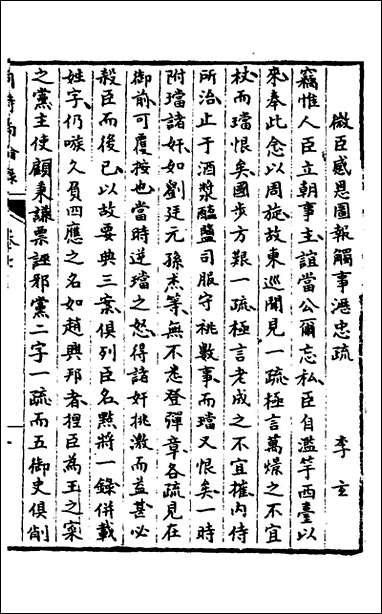 微臣感恩圖報觸事瀝忠疏　李玄
竊惟人臣立朝事主誼當公爾忘私臣自濫竽西臺以
來奉此念以周旋故東巡聞見一疏極言萬燝之不宜
杖而璫恨矣國步方艱一疏極言老成之不宜摧內侍
所治止于酒漿醯鹽司服守祧數事而璫又恨矣一時
附璫諸奸如劉廷元孫杰等無不悉登彈章各疏見在
御前可覆按也當時逆璫之怒得諸奸挑激而益甚必
殺臣而後已以故要典三案俱列臣名點將一錄併載
姓字仍嗾久負四應之名如趙興邦者捏臣為王之寀
之黨主使顧秉謙票誣邪黨二字一疏而五御史俱削